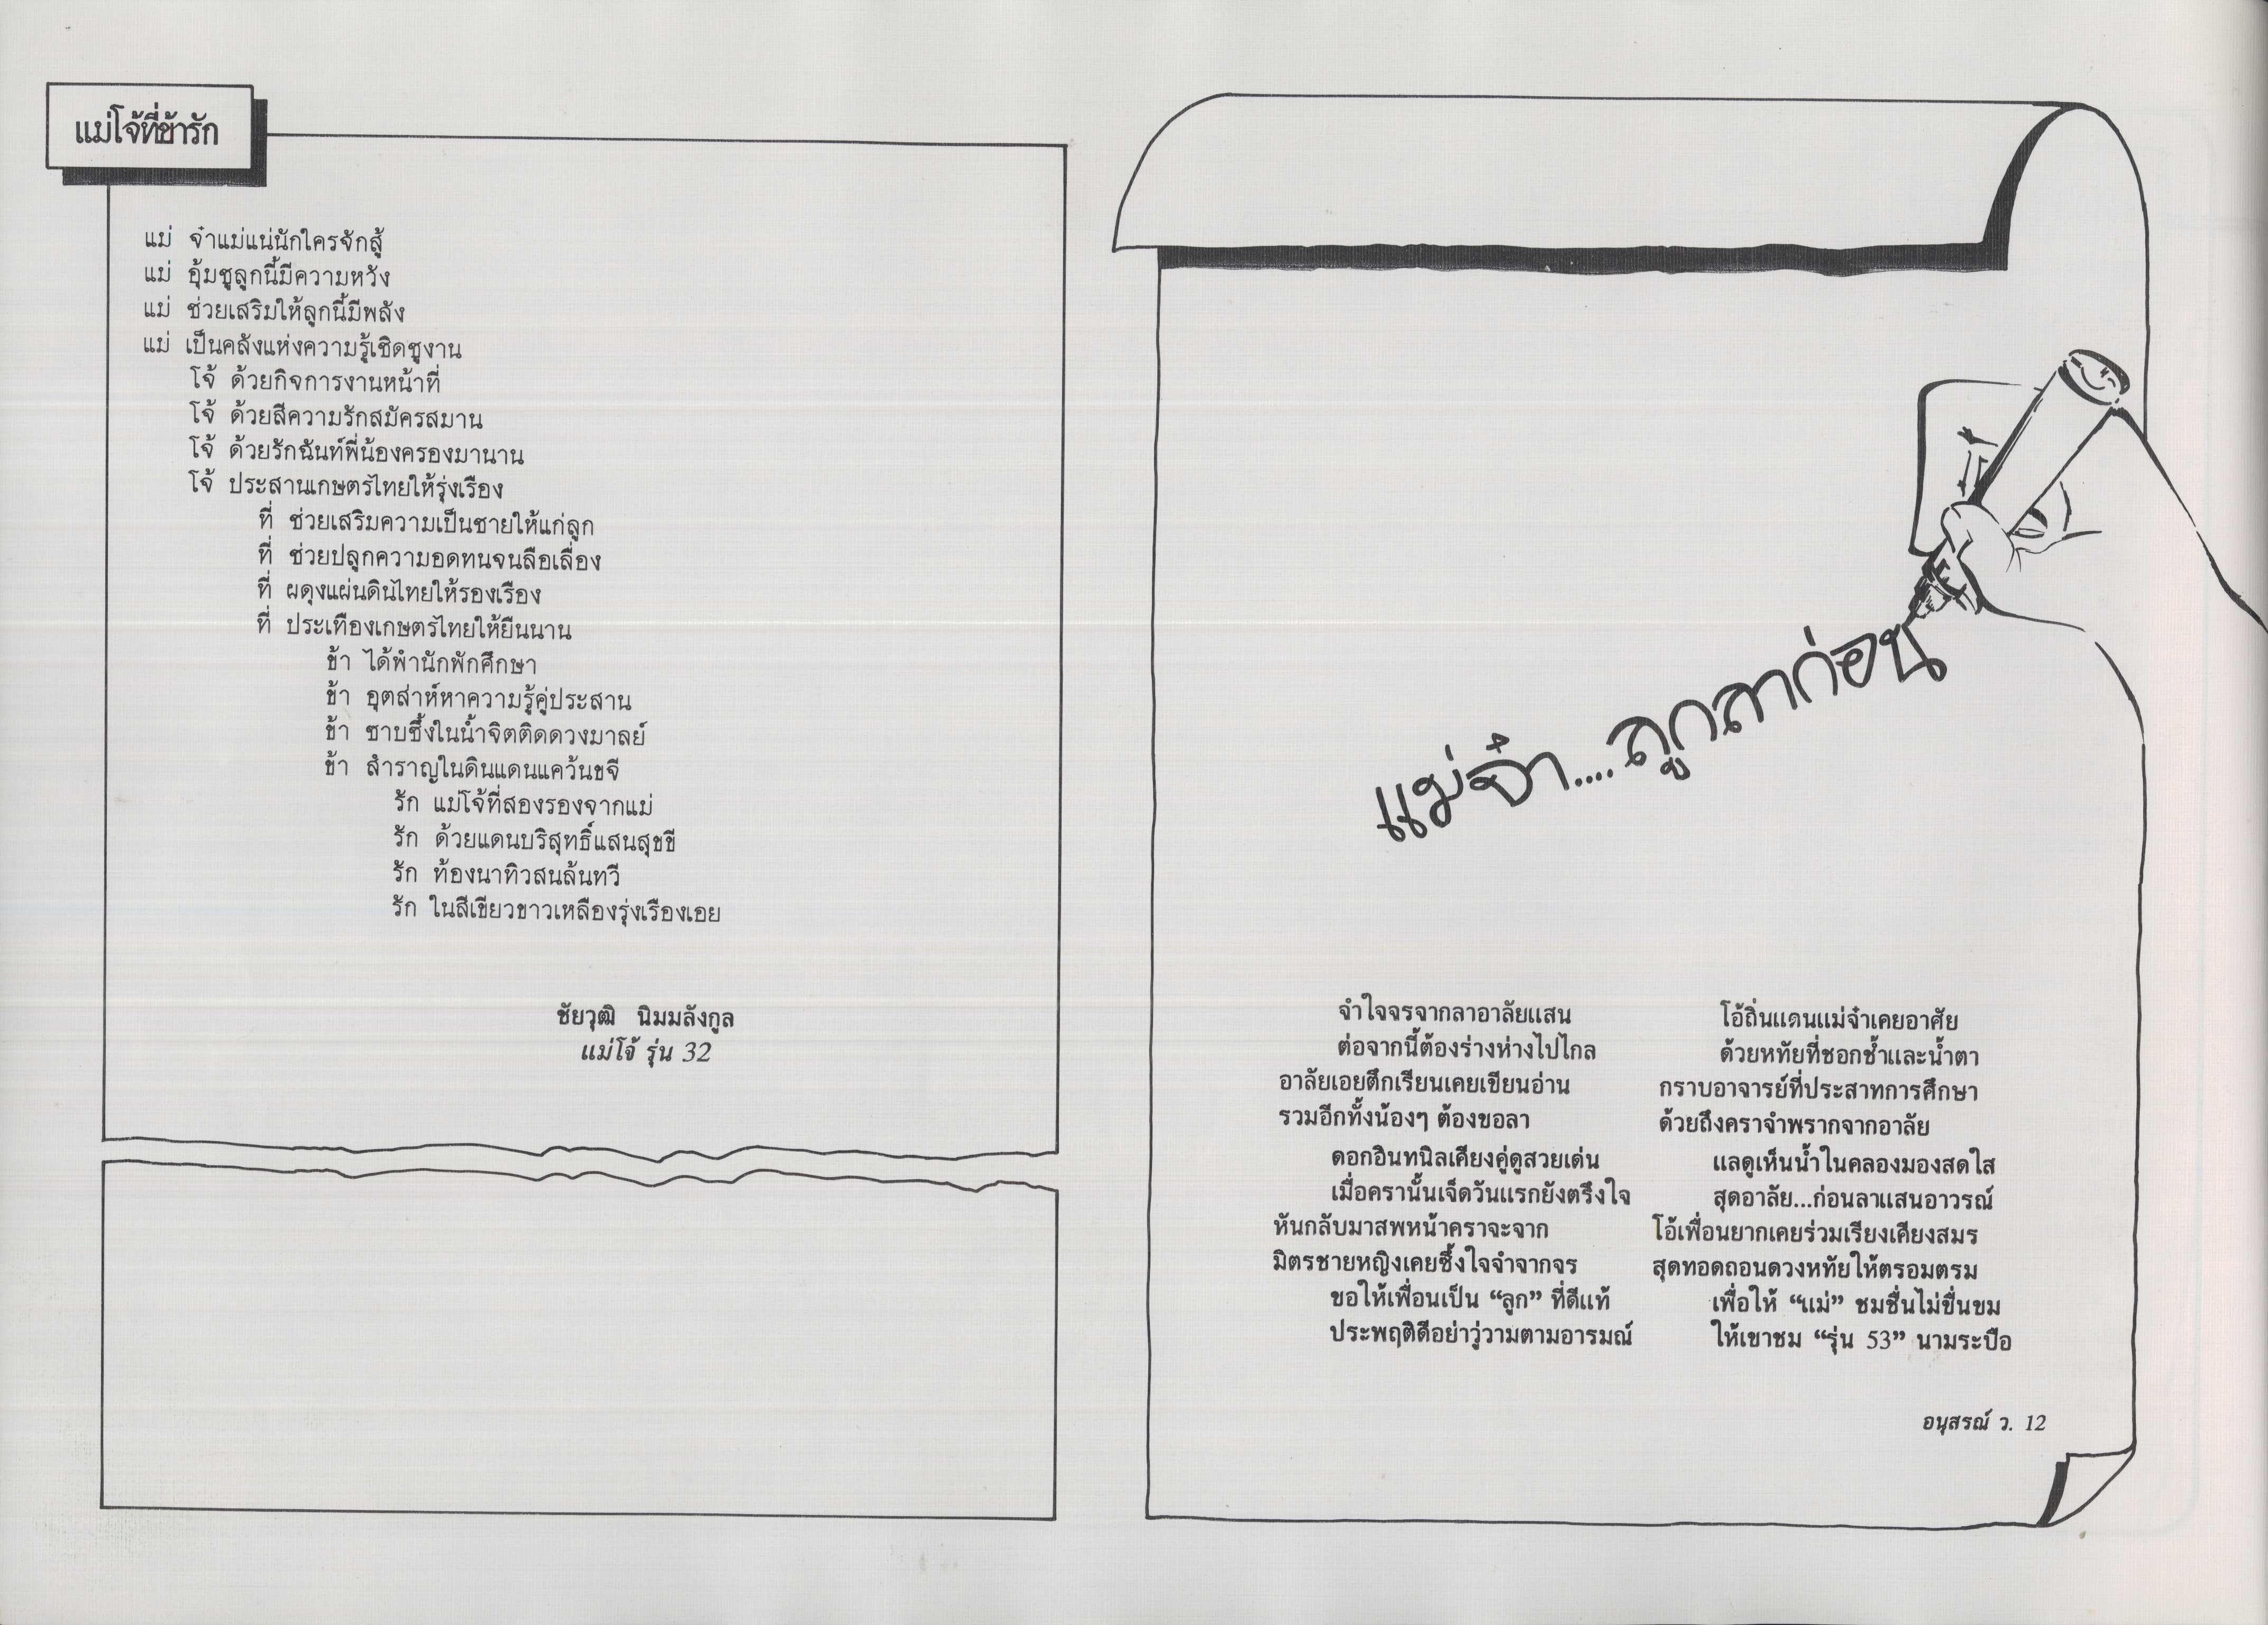 แม่โจ้ที่ข้ารัก
แม่ จำแม่แน่นักใครจักสู้
แม่ อุ้มชูลูกนี้มีความหวัง
แม่ ช่วยเสริมให้ลูกนี้มีพลัง
แม่ เป็นคลังแห่งความรู้เชิดชูงาน
โจ้ ด้วยกิจการงานหน้าที่
โจ้ ด้วยสีความรักสมัครสมาน
โจ้ ด้วยรักฉันท์พี่น้องครองมานาน
โจ้ ประสานเกษตรไทยให้รุ่งเรือง
ที่ ช่วยเสริมความเป็นชายให้แก่ลูก
ที่ ช่วยปลูกความอดทนจนลือเลื่อง
ที่ ผดุงแผ่นดินไทยให้รองเรือง
ที่ ประเทืองเกษตรไทยให้ยืนนาน
ข้า ได้พำนักพักศึกษา
ข้า อุตส่าห์หาความรู้คู่ประสาน
ข้า ซาบซึ้งในน้ำจิตติดดวงมาลย์
ข้า สำราญในดินแดนแคว้นขจี
รัก แม่โจ้ที่สองรองจากแม่
รัก ด้วยแดนบริสุทธิ์แสนสุขขี
รัก ท้องนาทิวสนล้นทวี
รัก ในสีเขียวขาวเหลืองรุ่งเรืองเอย
ชัยวุฒิ นิมมลังกูล
แม่โจ้ รุ่น 32
แม่จ๋า....ลูกลาก่อน
จำใจจรจากลาอาลัยแสน โอ้ถิ่นแดนแม่จ๋าเคยอาศัย
ต่อจากนี้ต้องร่างห่างไปไกล ด้วยหทัยที่ชอกช้ำและน้ำตา
อาลัยเอยตึกเรียนเคยเขียนอ่าน กราบอาจารย์ที่ประสาทการศึกษา
รวมอีกทั้งน้องๆ ต้องขอลา ด้วยถึงคราจำพรากจากอาลัย
ดอกอินทนิลเคียงคู่ดูสวยเด่น แลดูเห็นน้ำในคลองมองสดใส
เมื่อครานั้นเจ็ดวันแรกยังตรึงใจ สุดอาลัย...ก่อนลาแสนอาวรณ์
หันกลับมาสพหน้าคราจะจาก โอ้เพื่อนยากเคยร่วมเรียงเคียงสมร
มิตรชายหญิงเคยซึ้งใจจำจากจร สุดทอดถอนดวงหทัยให้ตรอมตรม
ขอให้เพื่อนเป็น “ลูก” ที่ดีแท้ เพื่อให้ “แม่” ชมชื่นไม่ขื่นขม
ประพฤติดีอย่าวู่วามตามอารมณ์ ให้เขาชม “รุ่น 53” นามระบือ
อนุสรณ์ ว. 12